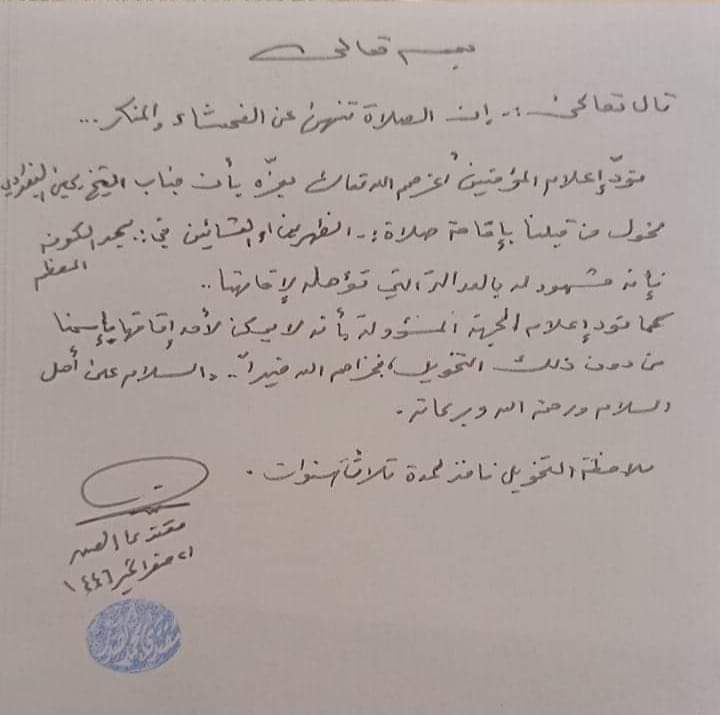 بسمه تعالى
قال تعالى :ـ إن الصلاة تنهى عن الفحشاء والمنكر ...
نودّ إعلام المؤمنين أعزهم الله تعالى بعزّه بأن جناب الشيخ يحيى
مخول من قبلنا بإقامة صلاة :ـ الظهرين او العشائين في :ـ مسجد الكوفة
المعظم
فإنه مشهود له بالعدالة التي تؤهله لإقامتها ..
كما نود إعلام الجهة المسؤولة بأنه لا يمكن لأحد إقامتها بإسمنا
من دون ذلك التخويل، فجزاهم الله خيراً .. والسلام على أهل
السلام ورحمة الله وبركاته .
ملاحظة التخويل نافذ لمدة ثلاث سنوات .
مقتدى الصدر
صفر الخير ١٤٤٦